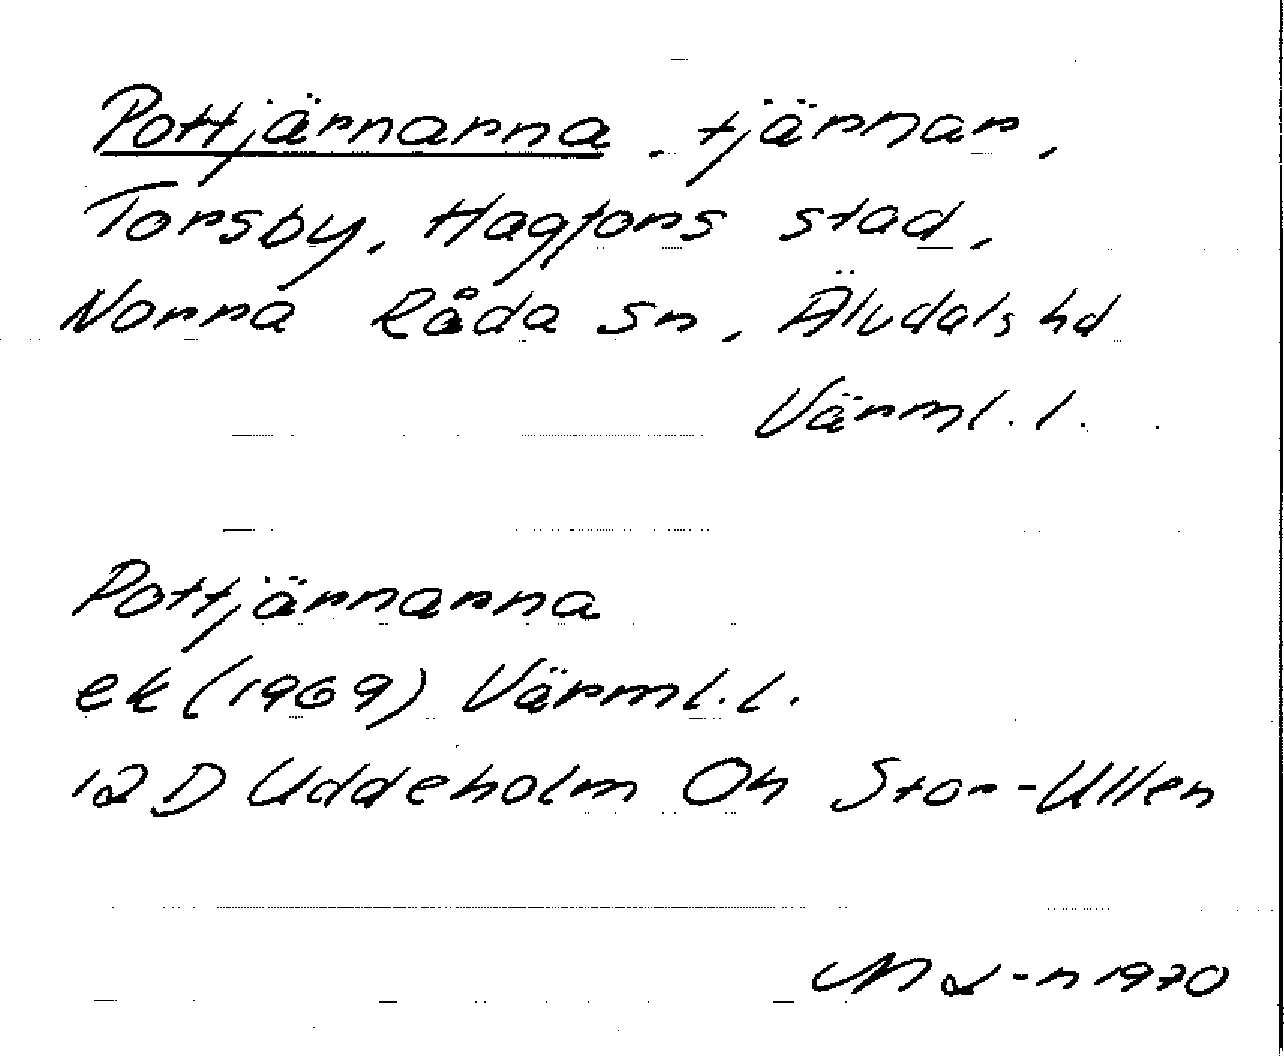 Pottjärnarna, tjärnar,
Torsby, Hagfors stad,
Norra Råda sn, Älvdals hd
Värml. l.
Pottjärnarna
ek (1969) Värml. l.
12 D Uddeholm Oh Stor-Ullen
1970